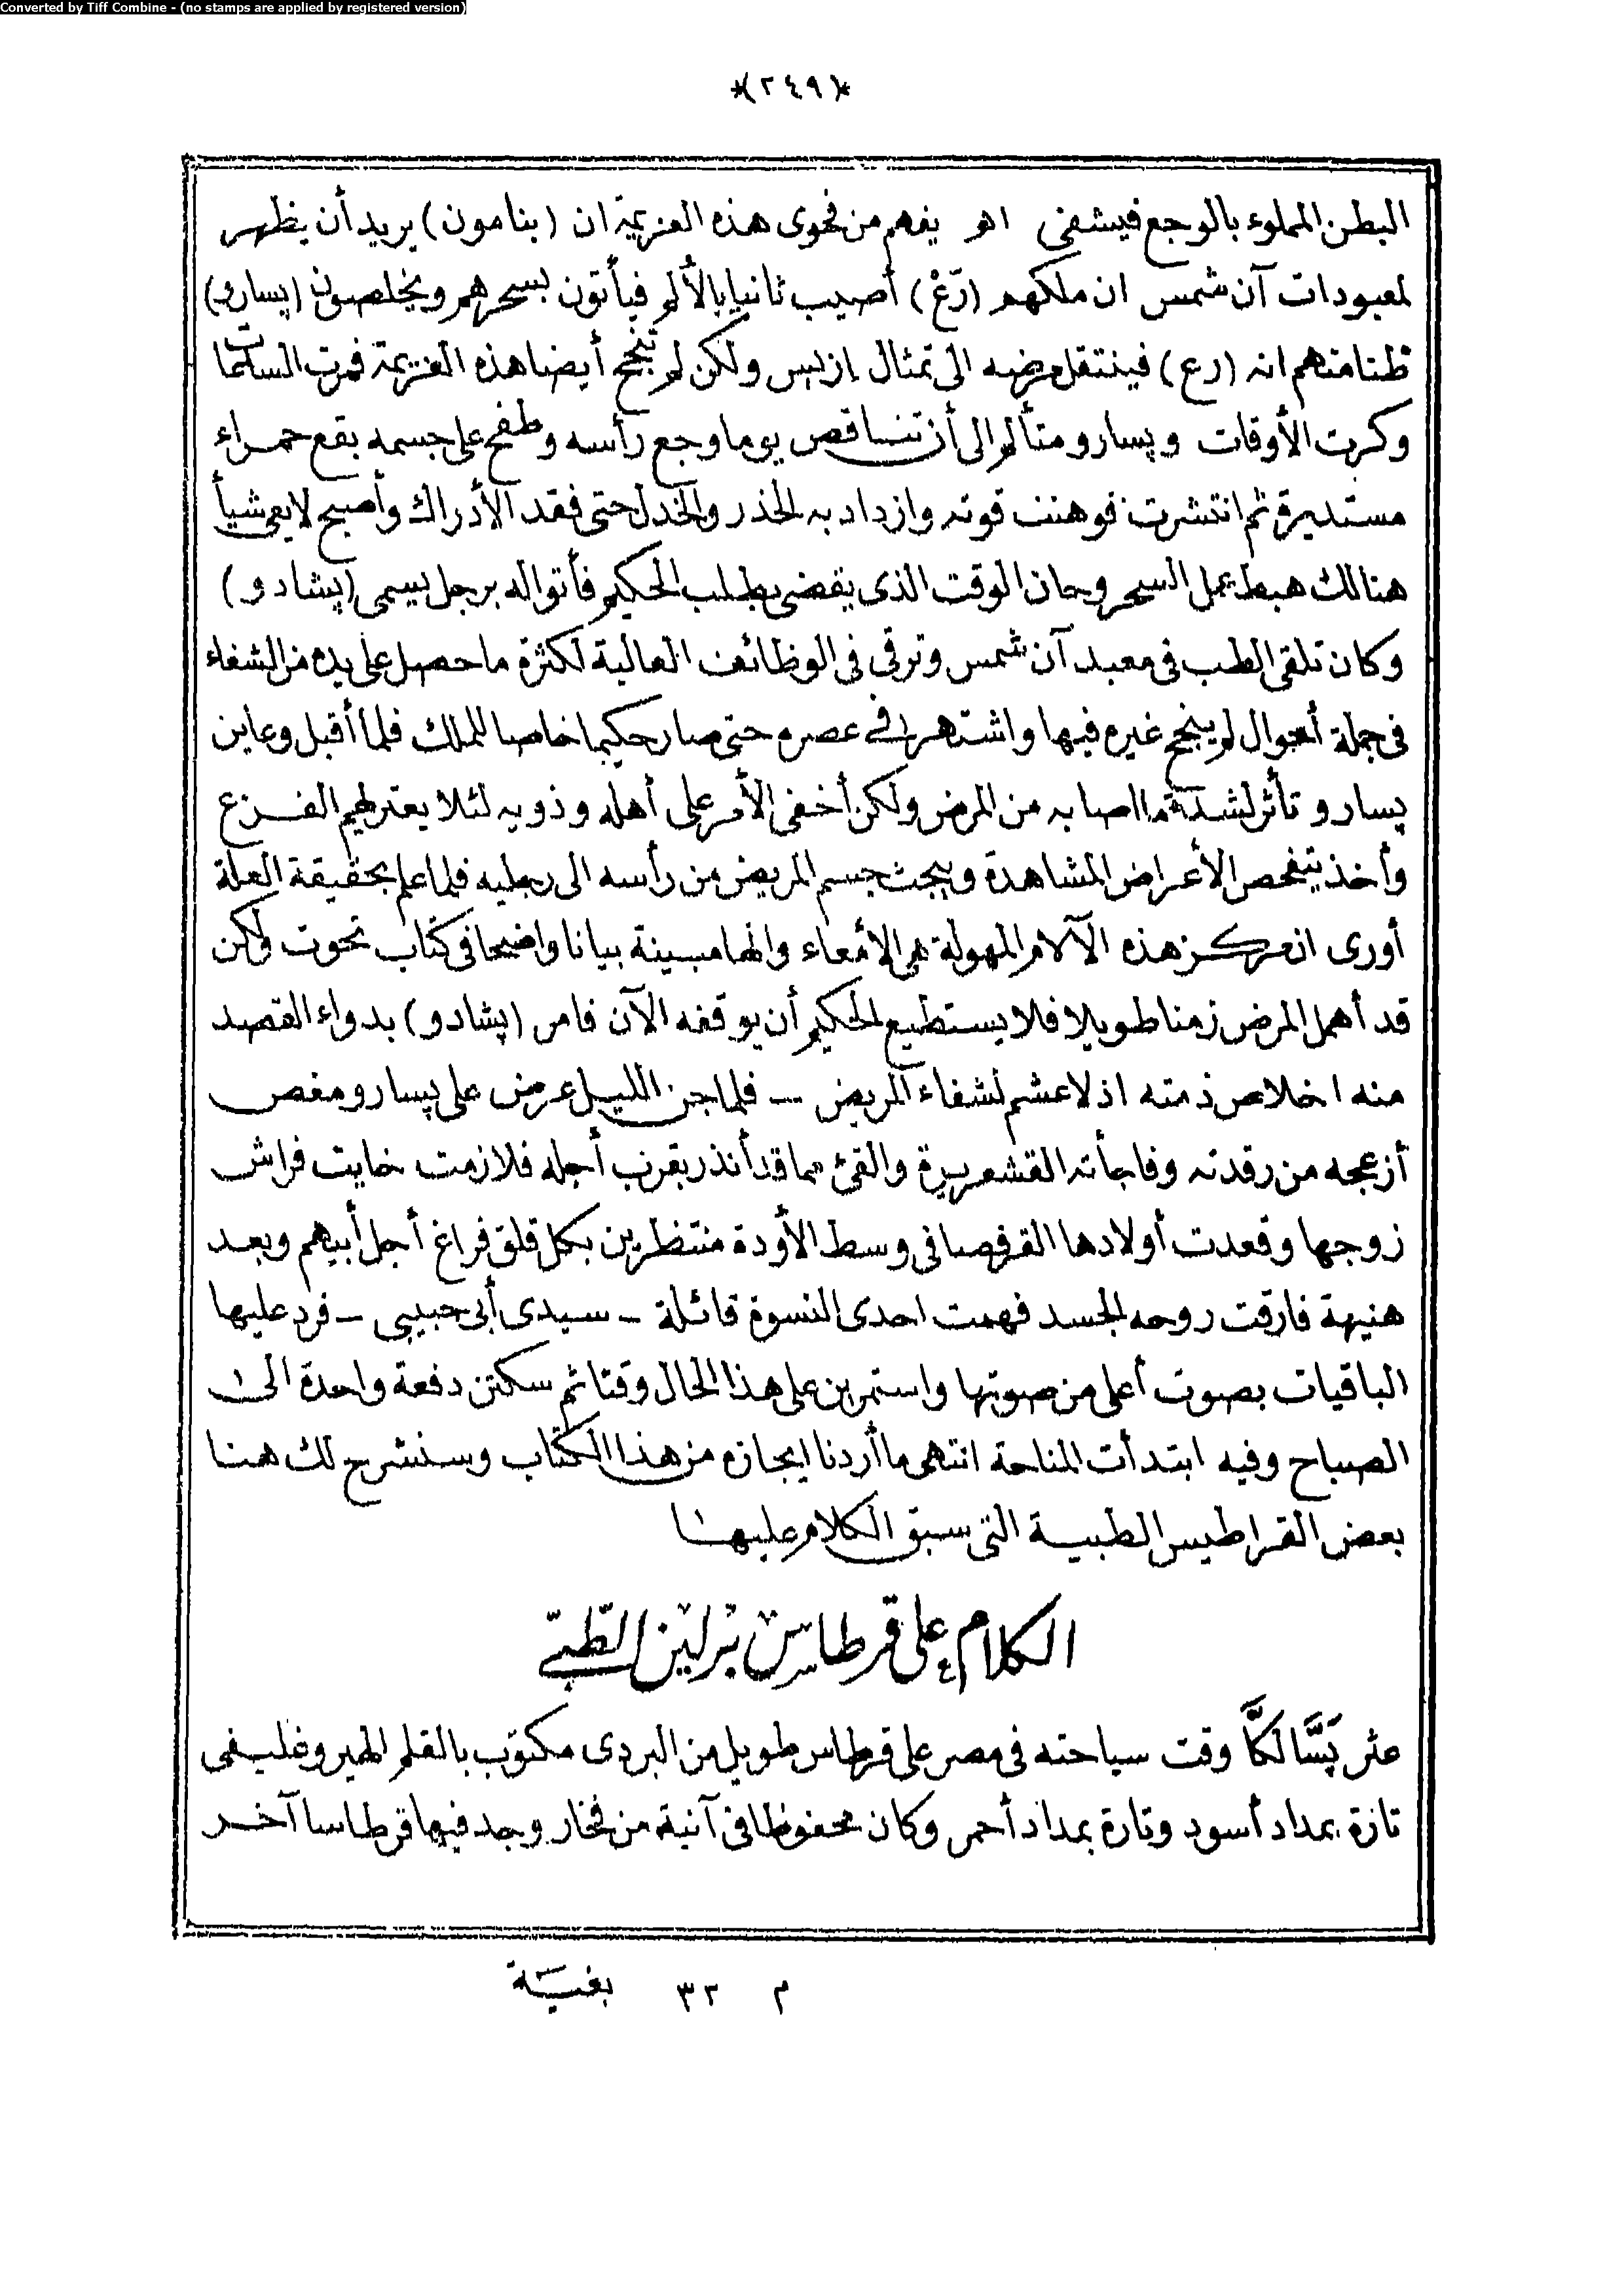 Converted by Tiff Combine - (no stamps are applied by registered version)
*(٢٤٩)*
البطن المملوء بالوجع فيشفى اهـ يفهم من فحوى هذه العزيمة ان (بنامون) يريد أن يظهر
لمعبودات آن شمس ان ملكهم (رَعْ) أصيب ثانيا بالألم فيأتون بسحرهم ويخلصون (پسارو)
ظنا منهم انه (رع) فينتقل مرضه الى تمثال إزيس ولكن لم تنجح أيضا هذه العزيمة فمرت الساعات
وكرت الأوقات وپسارو متألم الى أن تناقص يوما وجع رأسه وطفح على جسمه بقع حمراء
مستديرة ثم انتشرت فوهنت قوته وازداد به الخدر والخدل حتى فقد الأدراك وأصبح لايعى شيأ
هنالك هبط عمل السحر وحان الوقت الذى يقضى بطلب الحكيم فأتوا له برجل يسمى (پشادو)
وكان تلقى الطب فى معبد آن شمس وترقى فى الوظائف العالية لكثرة ماحصل على يده من الشفاء
فى جملة أحوال لم ينجح غيره فيها واشتهر فى عصره حتى صار حكيما خاصا للملك فلما أقبل وعاين
پسارو تأثر لشدة ما اصابه من المرض ولكن أخفى الأمر على أهله وذويه لئلا يعتريهم الفزع
وأخذ يتفحص الأعراض المشاهدة ويبحث جسم المريض من رأسه الى رجليه فلما علم بحقيقة العلة
أورى ان مركز هذه الآلام المهولة هى الامعاء وانها مبينة بيانا واضحا فى كتاب تحوت ولكن
قد أهمل المرض زمنا طويلا فلا يستطيع الحكيم أن يوقفه الآن فامر (پشادو) بدواء القصد
منه اخلاص ذمته اذ لاعشم لشفاء المريض -- فلما جن الليل عرض على پسارو مغص
أزعجه من رقدته وفاجأته القشعريرة والقئ مما قد أنذر بقرب أجله فلازمت خايت فراش
زوجها وقعدت أولادها القرفصا فى وسط الأودة منتظرين بكل قلق فراغ أجل أبيهم وبعد
هنيهة فارقت روحه الجسد فهمت احدى النسوة قائلة - سيدى أبى حبيبى - فرد عليها
الباقيات بصوت أعلى من صوتها واستمرين على هذا الحال وقتا ثم سكتن دفعة واحدة الى
الصباح وفيه ابتدأت المناحة انتهى ما أردنا ايجازه من هذا الكتاب وسنشرح لك هنا
بعض القراطيس الطبية التى سبق الكلام عليها
الكلام على قرطاس برلين الطبى
عثر پَسَّالَكَّا وقت سياحته فى مصر على قرطاس طويل من البردى مكتوب بالقلم الهيروغليفى
تارة بمداد أسود وتارة بمداد أحمر وكان محفوظا فى آنية من فخار وجد فيها قرطاسا آخر
م ٣٢ بغية